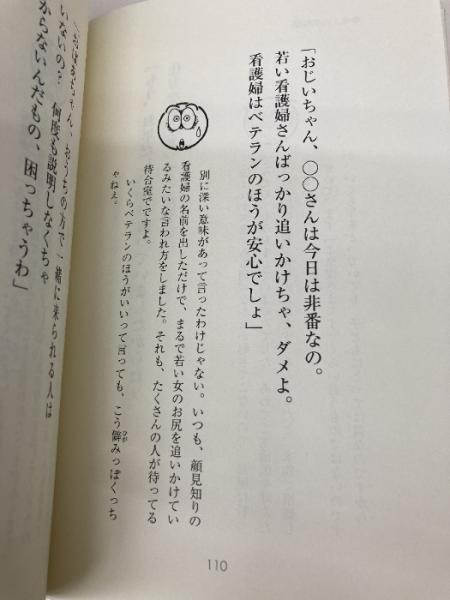 「おじいちゃん、○○さんは今日は非番なの。
若い看護婦さんばっかり追いかけちゃ、ダメよ。
看護婦はベテランのほうが安心でしょ」
別に深い意味があって言ったわけじゃない。いつも、顔見知りの
看護婦の名前を出しただけで、まるで若い女のお尻を追いかけてい
るみたいな言われ方をしました。それも、たくさんの人が待ってる
待合室でですよ。
いくらベテランのほうがいいって言っても、こう僻みっぽくっち
ゃねえ。
ひが
110
おうちの方で一緒に来られる人は
いないの？ 何度も説明しなくちゃ
からないんだもの、困っちゃうわ」